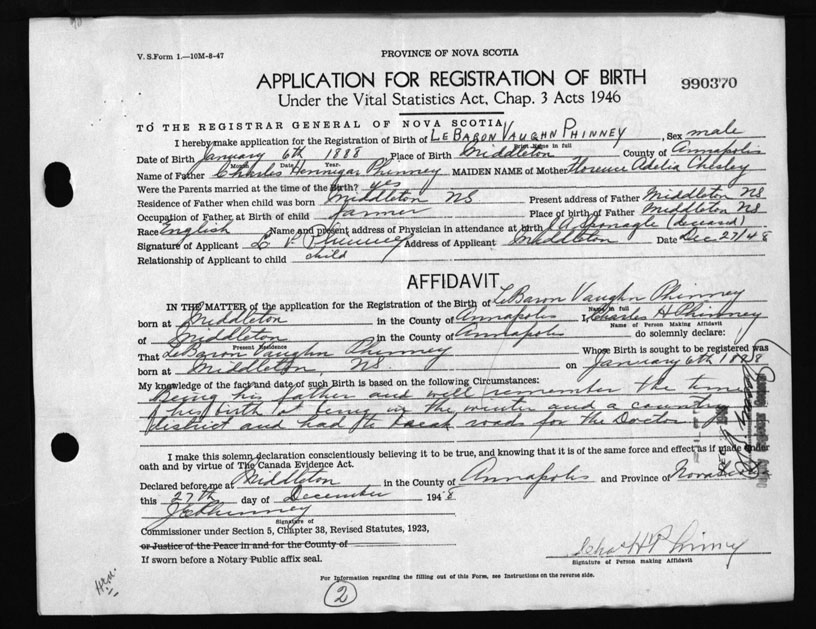 V. S. Form 1.—10M-8-47
PROVINCE OF NOVA SCOTIA
APPLICATION FOR REGISTRATION OF BIRTH
990370
Under the Vital Statistics Act, Chap. 3 Acts 1946
TO THE REGISTRAR GENERAL OF NOVA SCOTIA
I hereby make application for the Registration of Birth of LeBaron Vaughn Phinney, Sex male
Print Name in full
Date of Birth January 6th 1888 Place of Birth Middleton County of Annapolis
Month Date Year.
Name of Father Charles Hennigar Phinney MAIDEN NAME of Mother Florence Adelia Chesley
Were the Parents married at the time of the Birth? yes
Residence of Father when child was born Middleton NS Present address of Father Middleton NS
Occupation of Father at Birth of child farmer Place of birth of Father Middleton NS
Race English Name and present address of Physician in attendance at birth J.A. Sponagle (deceased)
Signature of Applicant L V Phinney Address of Applicant Middleton Date Dec 27/48
Relationship of Applicant to child child
AFFIDAVIT
IN THE MATTER of the application for the Registration of the Birth of LeBaron Vaughn Phinney
Name in full
born at Middleton in the County of Annapolis I, Charles H Phinney
Name of Person Making Affidavit
of Middleton in the County of Annapolis do solemnly declare:
Present Residence
That LeBaron Vaughn Phinney Whose Birth is sought to be registered was
born at Middleton, NS on January 6th 1888
My knowledge of the fact and date of such Birth is based on the following Circumstances:
Being his father and well remember the time
of his birth at being in the winter and a country
district and had to break roads for the Doctor
I make this solemn declaration conscientiously believing it to be true, and knowing that it is of the same force and effect as if made under
oath and by virtue of The Canada Evidence Act.
Declared before me at Middleton in the County of Annapolis and Province of Nova Scotia
this 27th day of December 1948
Signature of
Commissioner under Section 5, Chapter 38, Revised Statutes, 1923,
or Justice of the Peace in and for the County of
If sworn before a Notary Public affix seal.
Chas H Phinney
Signature of Person making Affidavit
For Information regarding the filling out of this Form, see Instructions on the reverse side.
2